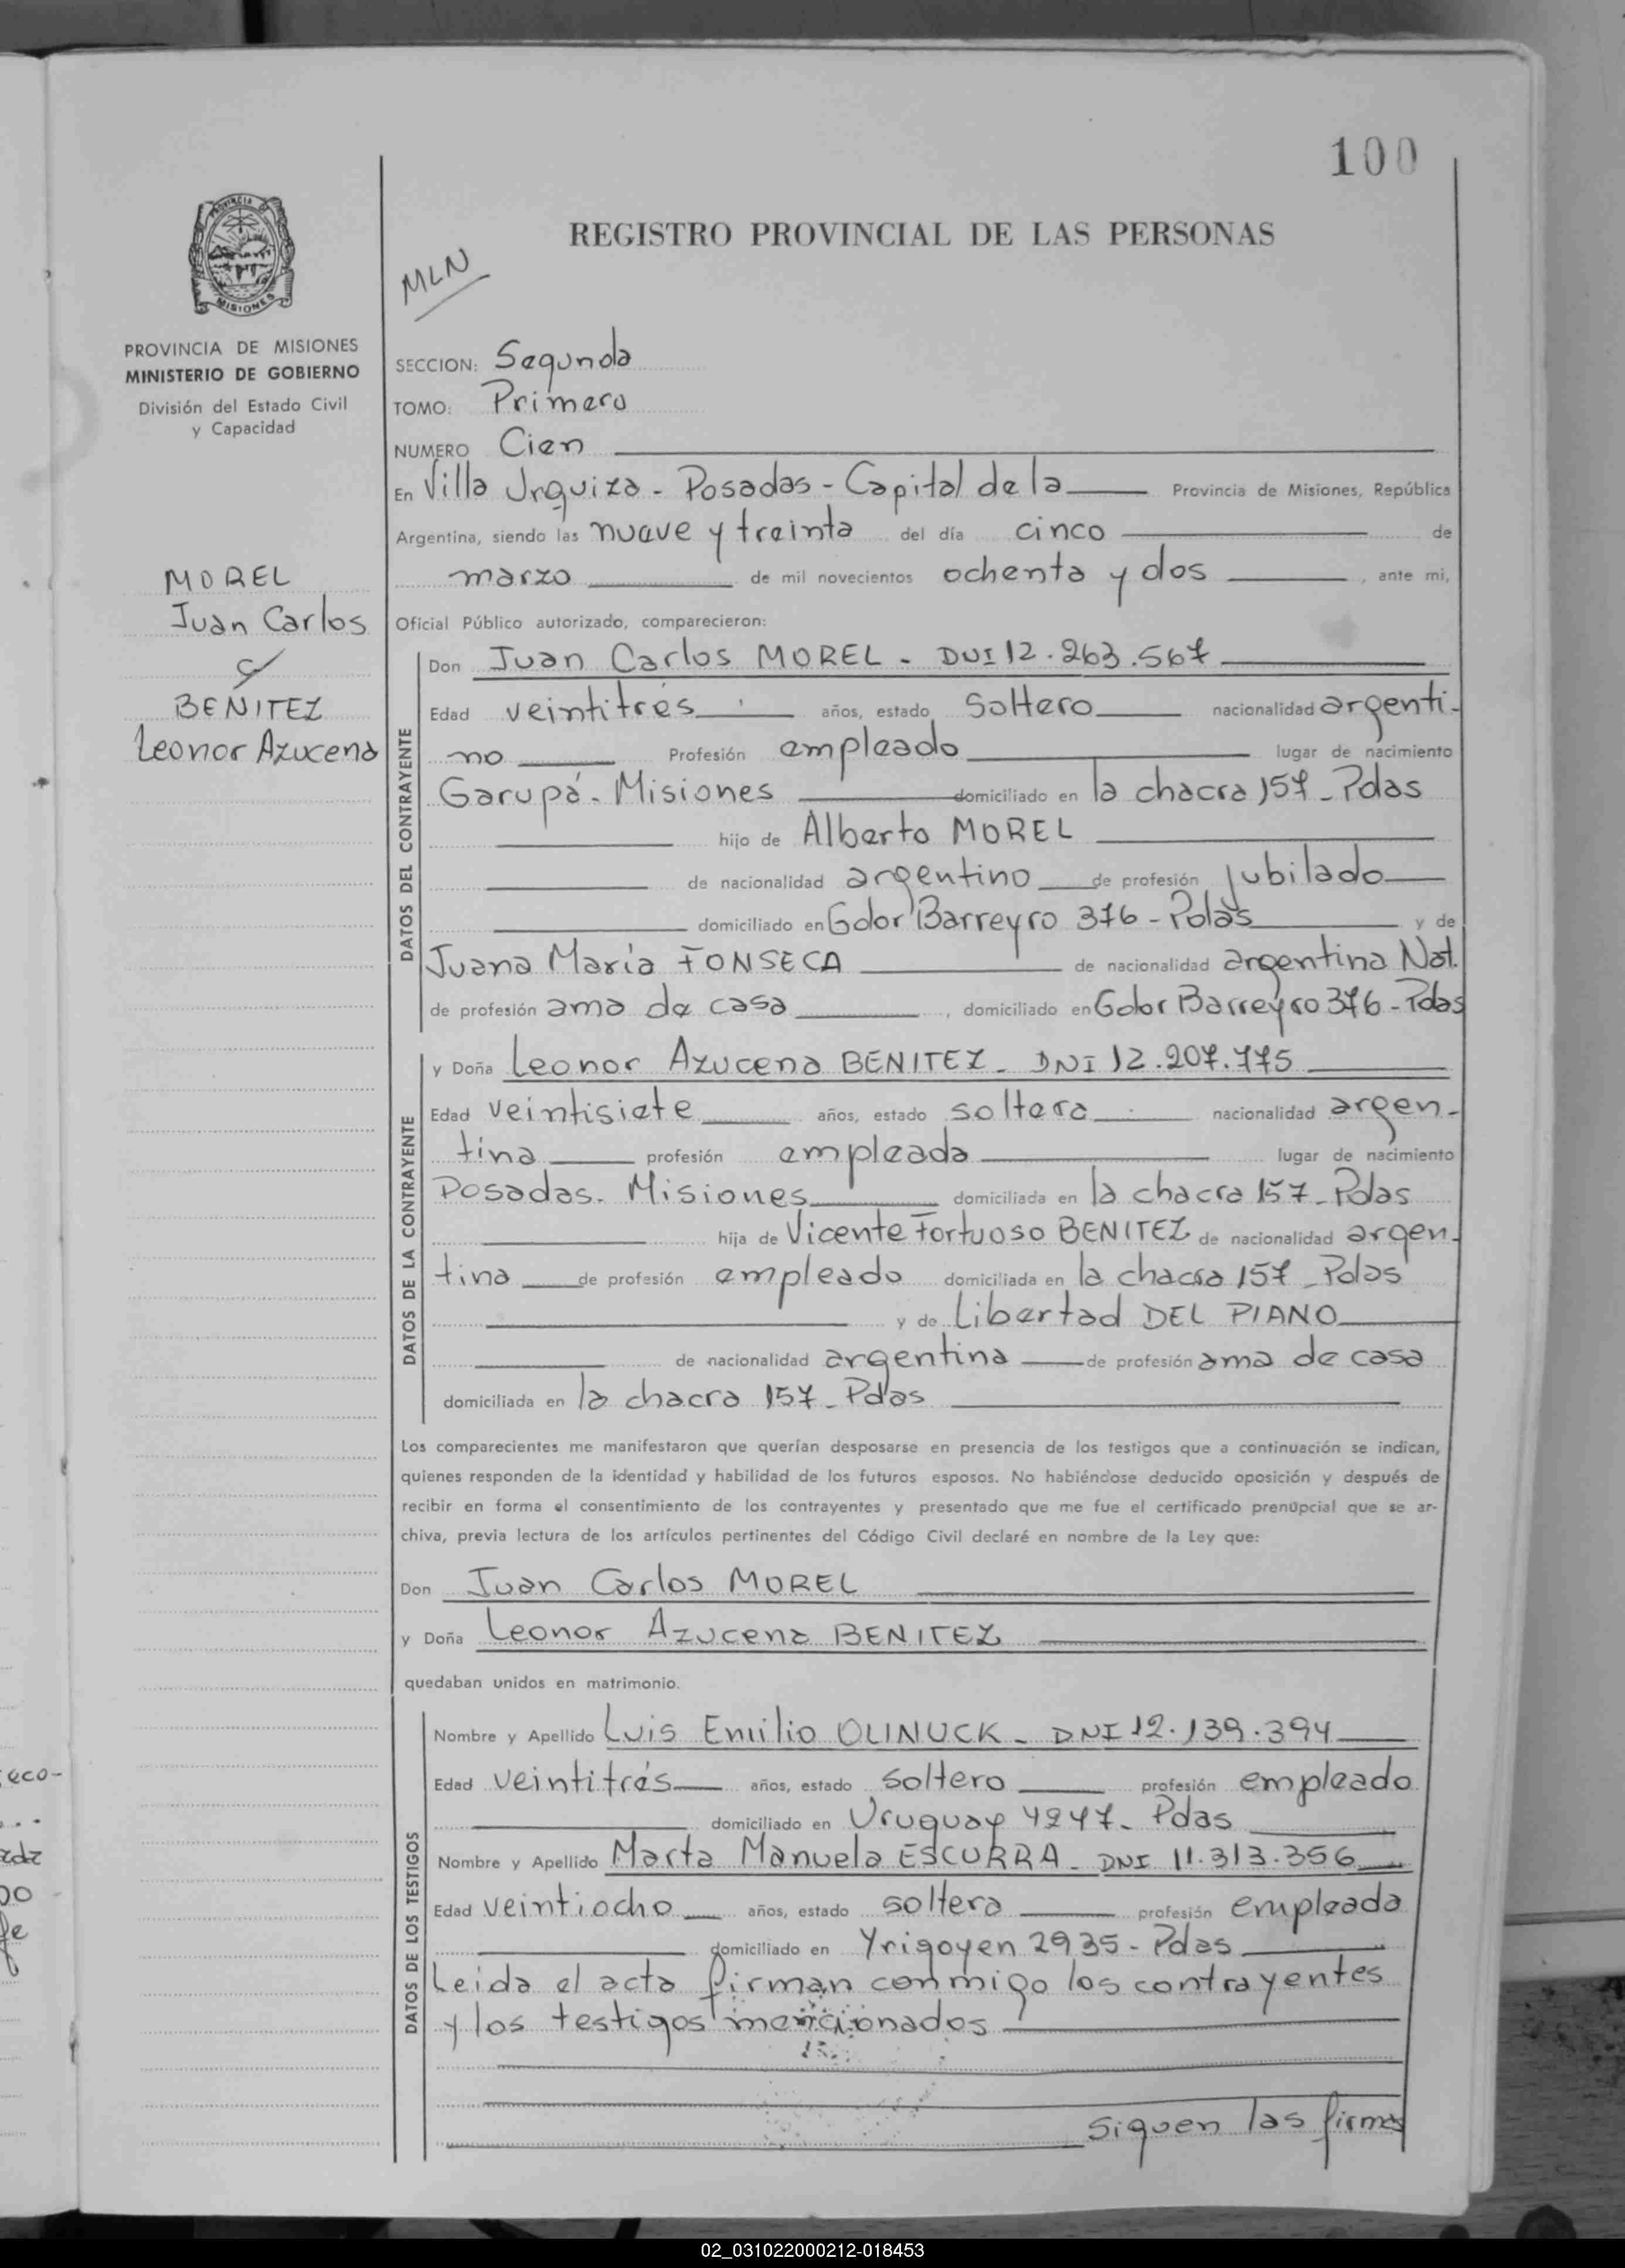 100
REGISTRO PROVINCIAL DE LAS PERSONAS
MLN
MISIONES
PROVINCIA DE MISIONES
MINISTERIO DE GOBIERNO
División del Estado Civil
y Capacidad
SECCION: Segunda
TOMO: Primero
NUMERO Cien
En Villa Urquiza - Posadas - Capital de la Provincia de Misiones, República
Argentina, siendo las nueve y treinta del día cinco de
marzo de mil novecientos ochenta y dos, ante mi,
Oficial Público autorizado, comparecieron:
MOREL
Juan Carlos
c/
BENITEZ
Leonor Azucena
DATOS DEL CONTRAYENTE
Don Juan Carlos MOREL - DNI 12.263.567
Edad veintitrés años, estado soltero nacionalidad argenti-
no Profesión empleado lugar de nacimiento
Garupá - Misiones domiciliado en la chacra 157 - Pdas
hijo de Alberto MOREL
de nacionalidad argentino de profesión jubilado
domiciliado en Gdor Barreyro 376 - Pdas y de
Juana María FONSECA de nacionalidad argentina Nat.
de profesión ama de casa, domiciliado en Gdor Barreyro 376 - Pdas
DATOS DE LA CONTRAYENTE
y Doña Leonor Azucena BENITEZ - DNI 12.207.775
Edad veintisiete años, estado soltera nacionalidad argen-
tina profesión empleada lugar de nacimiento
Posadas - Misiones domiciliada en la chacra 157 - Pdas
hija de Vicente Fortuoso BENITEZ de nacionalidad argen-
tina de profesión empleado domiciliada en la chacra 157 - Pdas
y de Libertad DEL PIANO
de nacionalidad argentina de profesión ama de casa
domiciliada en la chacra 157 - Pdas
Los comparecientes me manifestaron que querían desposarse en presencia de los testigos que a continuación se indican,
quienes responden de la identidad y habilidad de los futuros esposos. No habiéndose deducido oposición y después de
recibir en forma el consentimiento de los contrayentes y presentado que me fue el certificado prenupcial que se ar-
chiva, previa lectura de los artículos pertinentes del Código Civil declaré en nombre de la Ley que:
Don Juan Carlos MOREL
y Doña Leonor Azucena BENITEZ
quedaban unidos en matrimonio.
DATOS DE LOS TESTIGOS
Nombre y Apellido Luis Emilio OLINUCK - DNI 12.139.394
Edad veintitrés años, estado soltero profesión empleado
domiciliado en Uruguay 4247 - Pdas
Nombre y Apellido Marta Manuela ESCURRA - DNI 11.313.356
Edad veintiocho años, estado soltera profesión empleada
domiciliado en Yrigoyen 2935 - Pdas
Leida el acta firman conmigo los contrayentes
y los testigos mencionados
Siguen las firmas
02_031022000212-018453